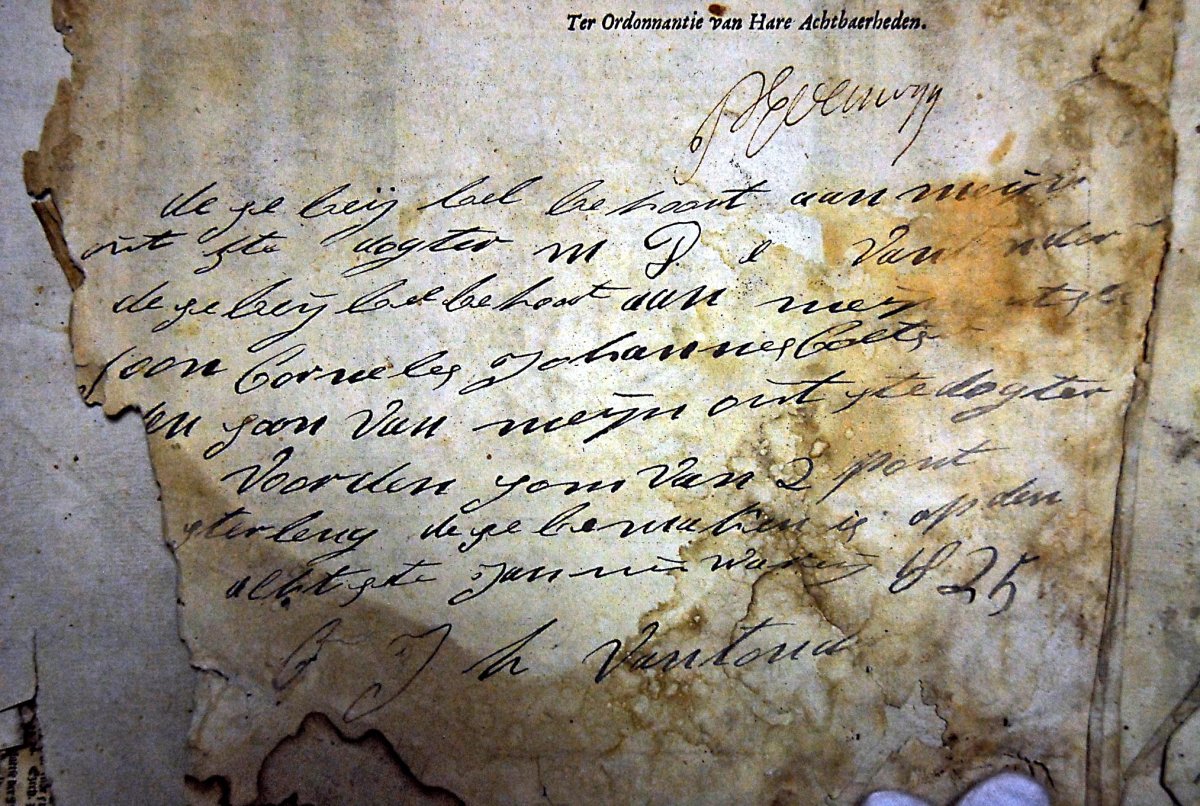 Ter Ordonnantie van Hare Achtbaerheden.
dese beij bel behoort aan meijn
out ste dogter M P e Van
dese beij bel behoort aan meij
soon Corneles Johannes
den soon Van meijn out ste dogter
Voorden som Van 2 pont
sterleng dese is op den
acht ste 1825
J h Vantond